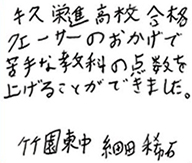 キス 栄進高校 合格
クエーサーのおかげで
苦手な教科の点数を
上げることができました。
竹園東中 細田 稀石